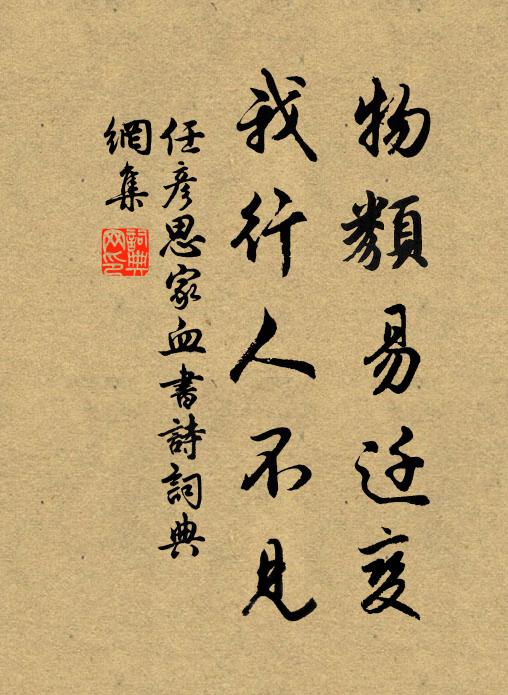 物類易迁变
我行人不見
任彦思家血書詩詞典
網集
詞典網印